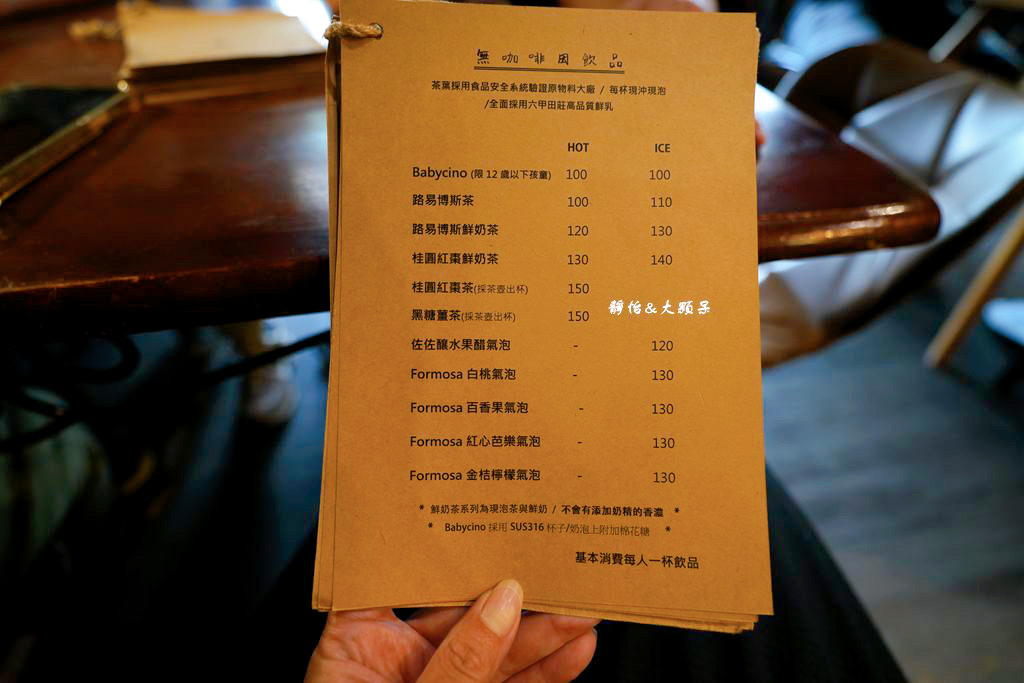 無咖啡因飲品
茶葉採用食品安全系統驗證原物料大廠 / 每杯現沖現泡
/全面採用六甲田莊高品質鮮乳
HOT ICE
Babycino (限 12 歲以下孩童) 100 100
路易博斯茶 100 110
路易博斯鮮奶茶 120 130
桂圓紅棗鮮奶茶 130 140
桂圓紅棗茶(採茶壺出杯) 150
黑糖薑茶(採茶壺出杯) 150
靜怡&大顆呆
佐佐釀水果醋氣泡 - 120
Formosa 白桃氣泡 - 130
Formosa 百香果氣泡 - 130
Formosa 紅心芭樂氣泡 - 130
Formosa 金桔檸檬氣泡 - 130
* 鮮奶茶系列為現泡茶與鮮奶 / 不會有添加奶精的香濃 *
* Babycino 採用 SUS316 杯子/奶泡上附加棉花糖 *
基本消費每人一杯飲品